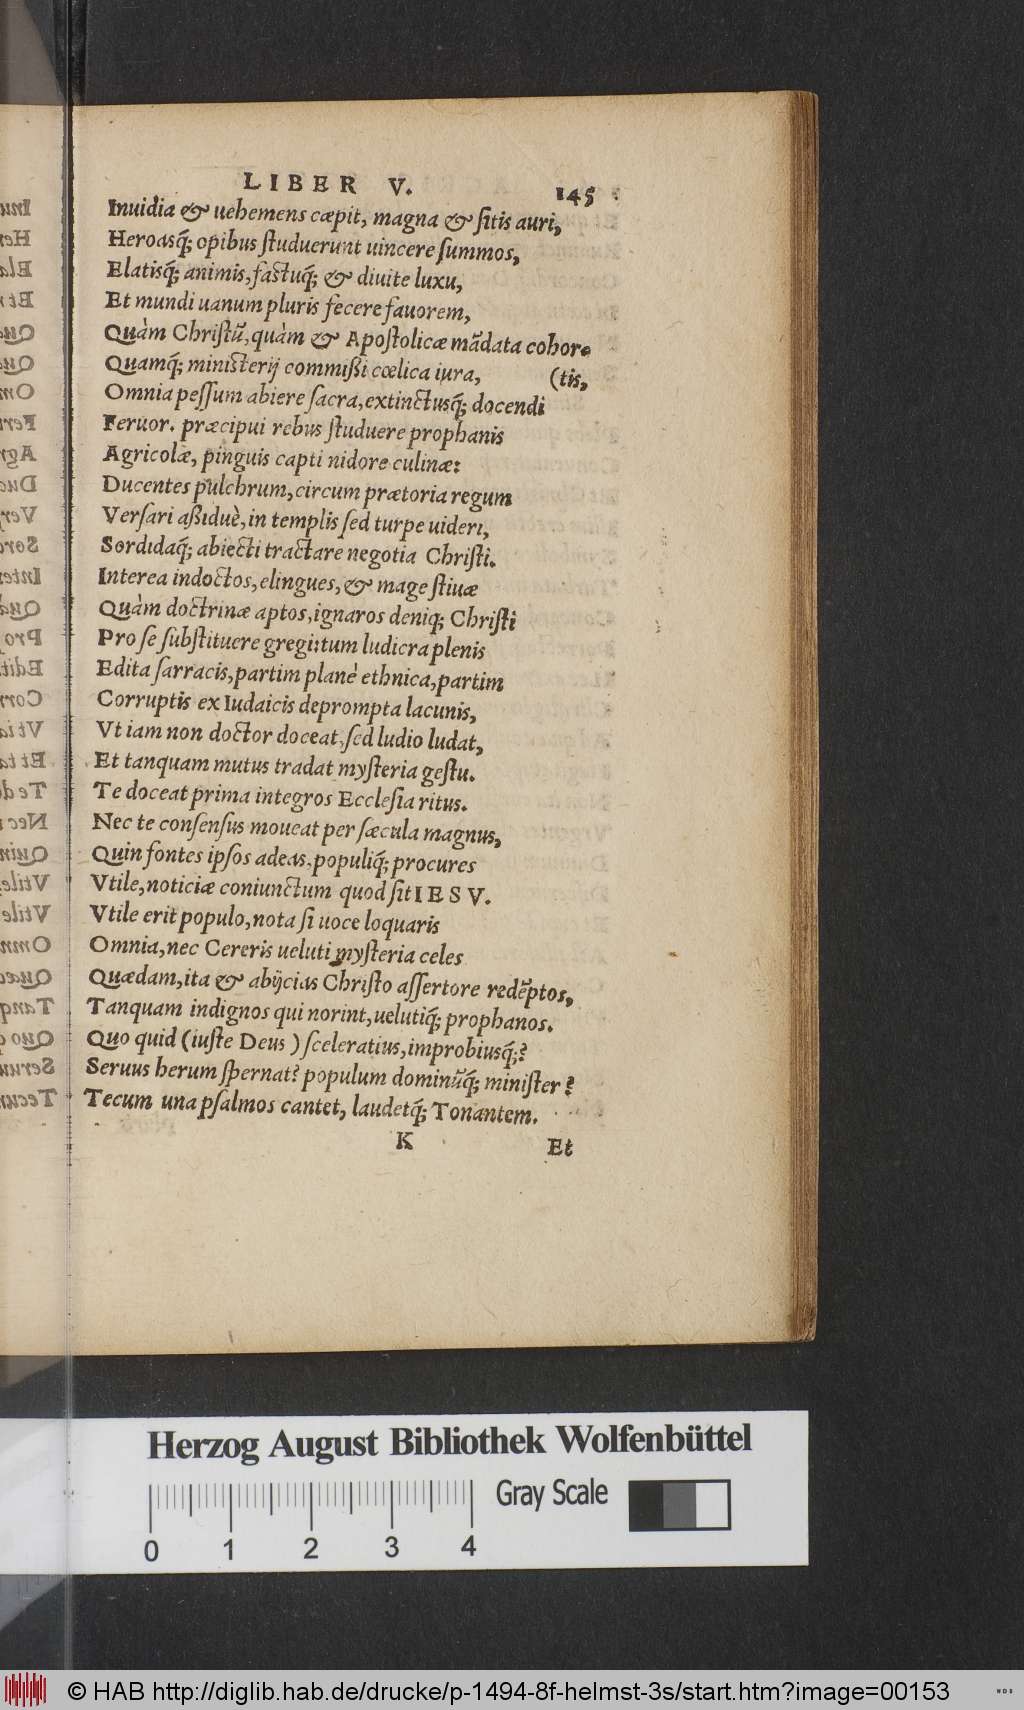 LIBER V. 145
Inuidia & uehemens cæpit, magna & sitis auri,
Heroasq́; opibus studuerunt uincere summos,
Elatisq́; animis, fastuq́; & diuite luxu,
Et mundi uanum pluris fecere fauorem,
Quàm Christũ, quàm & Apostolicæ mãdata cohor-
Quamq́; ministerij commißi cœlica iura, (tis,
Omnia pessum abiere sacra, extinctusq́; docendi
Feruor. præcipui rebus studuere prophanis
Agricolæ, pinguis capti nidore culinæ:
Ducentes pulchrum, circum prætoria regum
Versari aßiduè, in templis sed turpe uideri,
Sordidaq́; abiecti tractare negotia Christi.
Interea indoctos, elingues, & mage stiuæ
Quàm doctrinæ aptos, ignaros deniq; Christi
Pro se substituere gregi: tum ludicra plenis
Edita sarracis, partim planè ethnica, partim
Corruptis ex Iudaicis deprompta lacunis,
Vt iam non doctor doceat, sed ludio ludat,
Et tanquam mutus tradat mysteria gestu.
Te doceat prima integros Ecclesia ritus.
Nec te consensus moueat per sæcula magnus,
Quin fontes ipsos adeas, populiq́; procures
Vtile, noticiæ coniunctum quod sit IESV.
Vtile erit populo, nota si uoce loquaris
Omnia, nec Cereris ueluti mysteria celes
Quædam, ita & abijcias Christo assertore redẽptos,
Tanquam indignos qui norint, uelutiq́; prophanos.
Quo quid (iuste Deus) sceleratius, improbiusq́;?
Seruus herum spernat? populum dominũq́; minister?
Tecum una psalmos cantet, laudetq́; Tonantem.
K Et
Herzog August Bibliothek Wolfenbüttel
Gray Scale
0 1 2 3 4
© HAB http://diglib.hab.de/drucke/p-1494-8f-helmst-3s/start.htm?image=00153